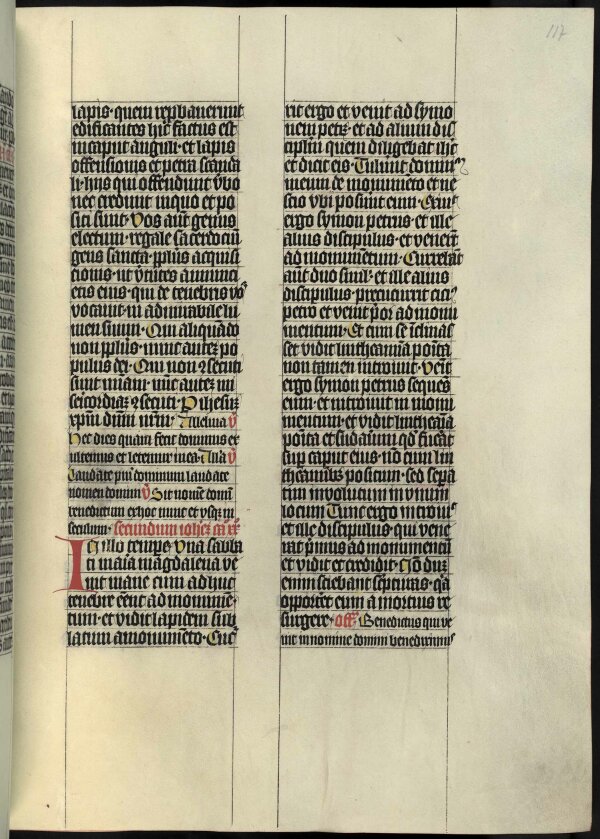 117
lapis quem reprobaverunt
edificantes hic factus est
in caput anguli et lapis
offensionis et petra scanda
li hiis qui offendunt vbo
nec credunt in quo et po
siti sunt Vos aut genus
electum regale sacerdociu
gens sancta pplus acquisi
cionis ut vtutes annunci
etis eius qui de tenebris vos
vocavit in admirabile lu
men suum Qui aliquado
non pplus nunc autem po
pulus dei Qui non 9secuti
sunt miam nuc autem mi
sericordiam 9secuti P ihesum
xpm dnm nrm Alleluia v
Hec dies quam fecit dominus ex
ultemus et letemur in ea Alla v
Laudate pueri dominum laudate
nomen domini v Sit nomen domini
benedictum ex hoc nunc et usque in
seculum secundum iohem ca xx
In illo tempore Una sabba
ti maria magdalena ve
nit mane cum adhuc
tenebre eent ad monume
tum et vidit lapidem sub
latum a monumeto Cuc
rit ergo et venit ad symo
nem petrum et ad alium dis
cipulum quem diligebat ihc
et dicit eis Tulerunt domi
num de monumeto et ne
scio ubi posuerunt eum Exiit
ergo symon petrus et ille
alius discipulus et venert
ad monumetum Currebant
aut duo simul et ille alius
discipulus precucurrit cici9
petro et venit por ad monu
mentum Et cum se iclinas
set vidit lintheamina poita
non tamen introivit Venit
ergo symon petrus seques
eum et introivit in monu
mentum et vidit lintheamina
poita et sudarium qd fuerat
sup caput eius no cum lin
theaminibus positum sed sepa
tim involutum in unum
locum Tunc ergo introivit
et ille discipulus qui vene
rat primus ad monumentu
et vidit et credidit Non dum
enim sciebant scpturas qa
opportet eum a mortuis re
surgere off Benedictus qui ve
nit in nomine domini benediximus